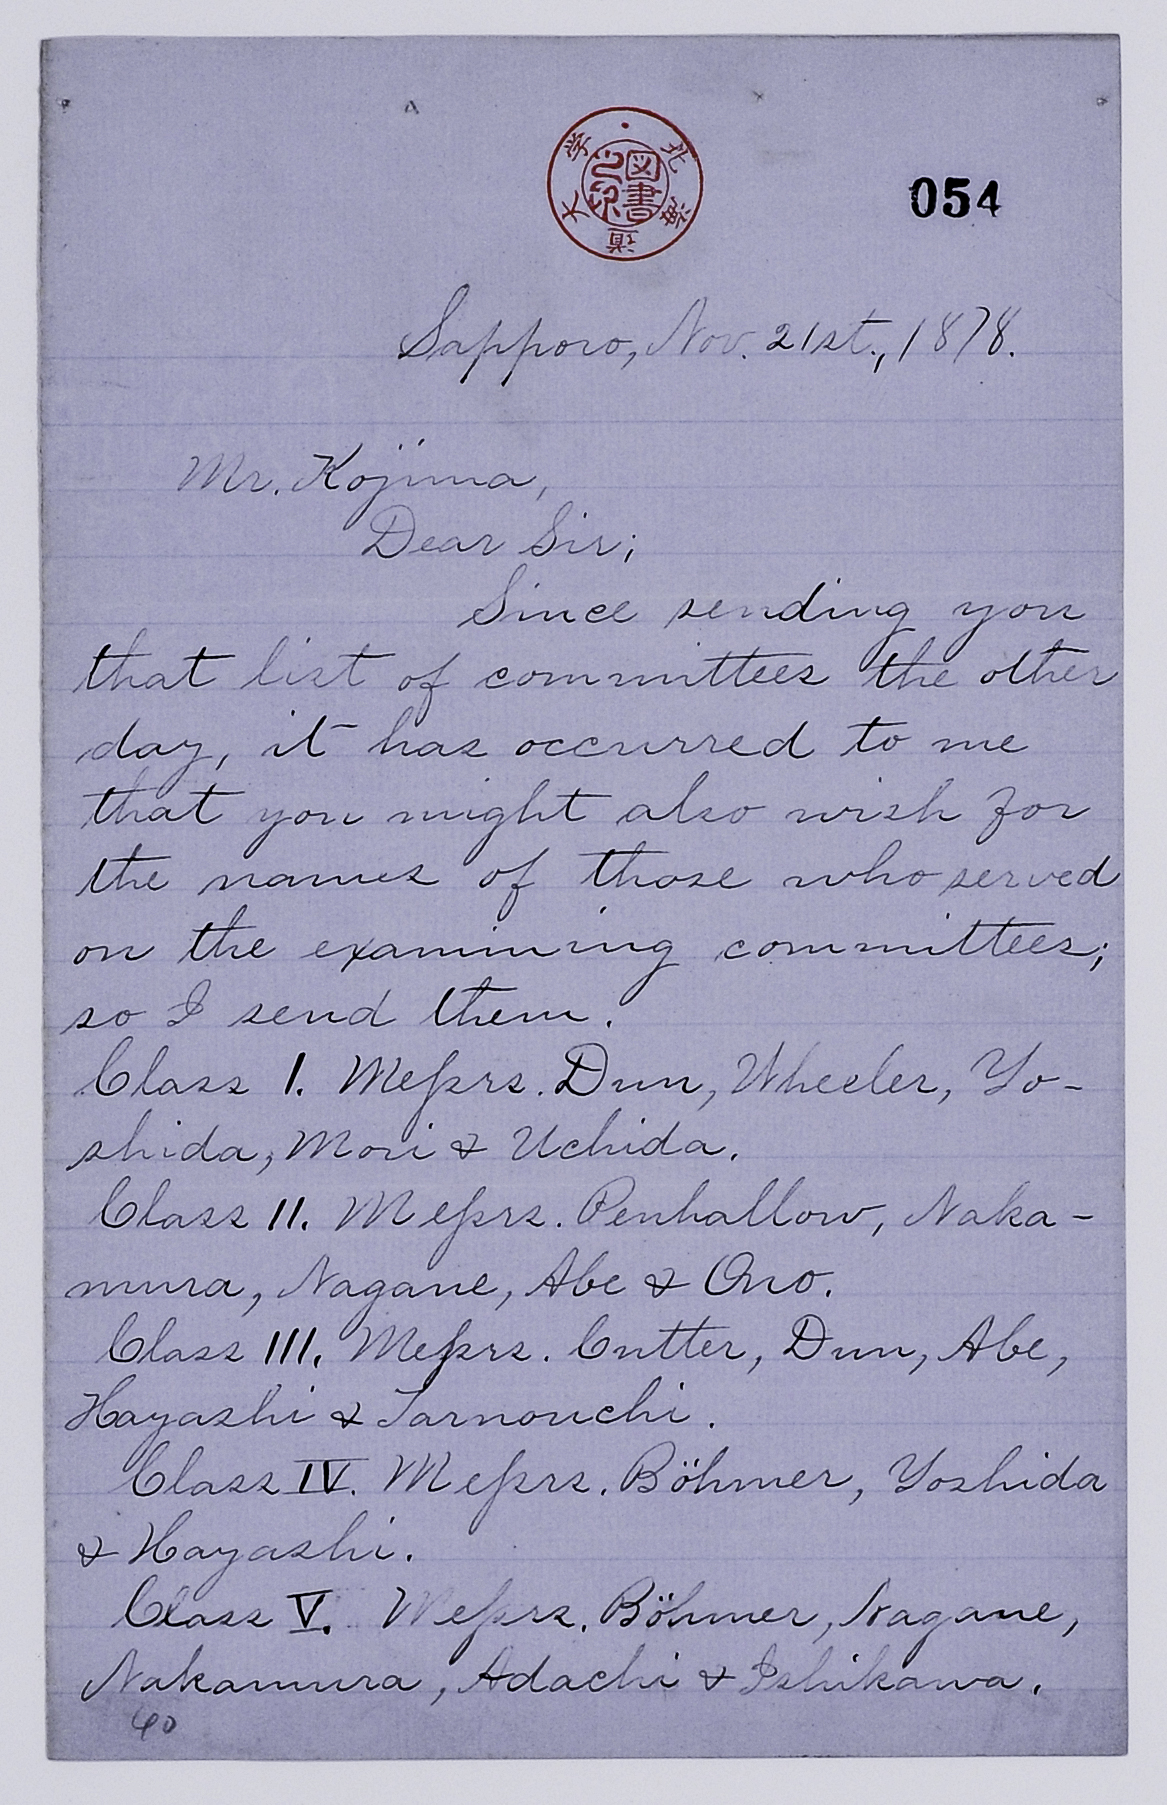 北海道大学
図書之印
054
Sapporo, Nov. 21st., 1878.
Mr. Kojima,
Dear Sir;
Since sending you
that list of committees the other
day, it has occurred to me
that you might also wish for
the names of those who served
on the examining committees;
so I send them.
Class I. Messrs. Dun, Wheeler, Yo-
shida, Mori & Uchida.
Class II. Messrs. Penhallow, Naka-
mura, Nagane, Abe & Ono.
Class III. Messrs. Cutter, Dun, Abe,
Hayashi & Tarnouchi.
Class IV. Messrs. Böhmer, Yoshida
& Hayashi.
Class V. Messrs. Böhmer, Nagane,
Nakamura, Adachi & Ishikawa.
40